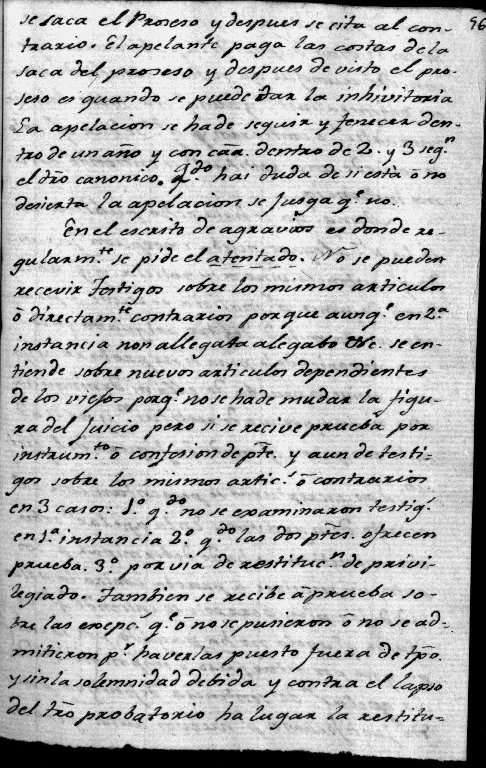 96
se saca el Proseso y despues se cita al con-
trario. El apelante paga las costas de la
saca del proseso y despues de visto el pro-
seso es quando se puede dar la inhivitoria
La apelacion se ha de seguir y fenecer den-
tro de un año y con caũ. dentro de 2. y 3 seg.n
el dro canonico. Q.do hai duda de si està ô no
desierta la apelacion se jusga q.e no.
En el escrito de agravios es donde re-
gularm.te se pide el atentado. No se pueden
recevir Testigos sobre los mismos articulos
ô directam.te contrarios porque aunq.e en 2.a
instancia non allegata alegabo &c. se en-
tiende sobre nuevos articulos dependientes
de los viejos porq.e no se ha de mudar la figu-
ra del juicio pero si se recive prueba por
instrum.to ô confesion de pte. y aun de testi-
gos sobre los mismos artic.s ô contrarios
en 3 casos: 1.o q.do no se examinaron testig.s
en 1.a instancia 2.o q.do las dos ptes. ofrecen
prueba. 3.o por via de restituc.n de privi-
legiado. Tambien se recibe â prueba so-
bre las excepc.s q.e ô no se pusieron ô no se ad-
mitieron p.r haverlas puesto fuera de tpo.
y sin la solemnidad debida y contra el lapso
del tro probatorio ha lugar la restitu-